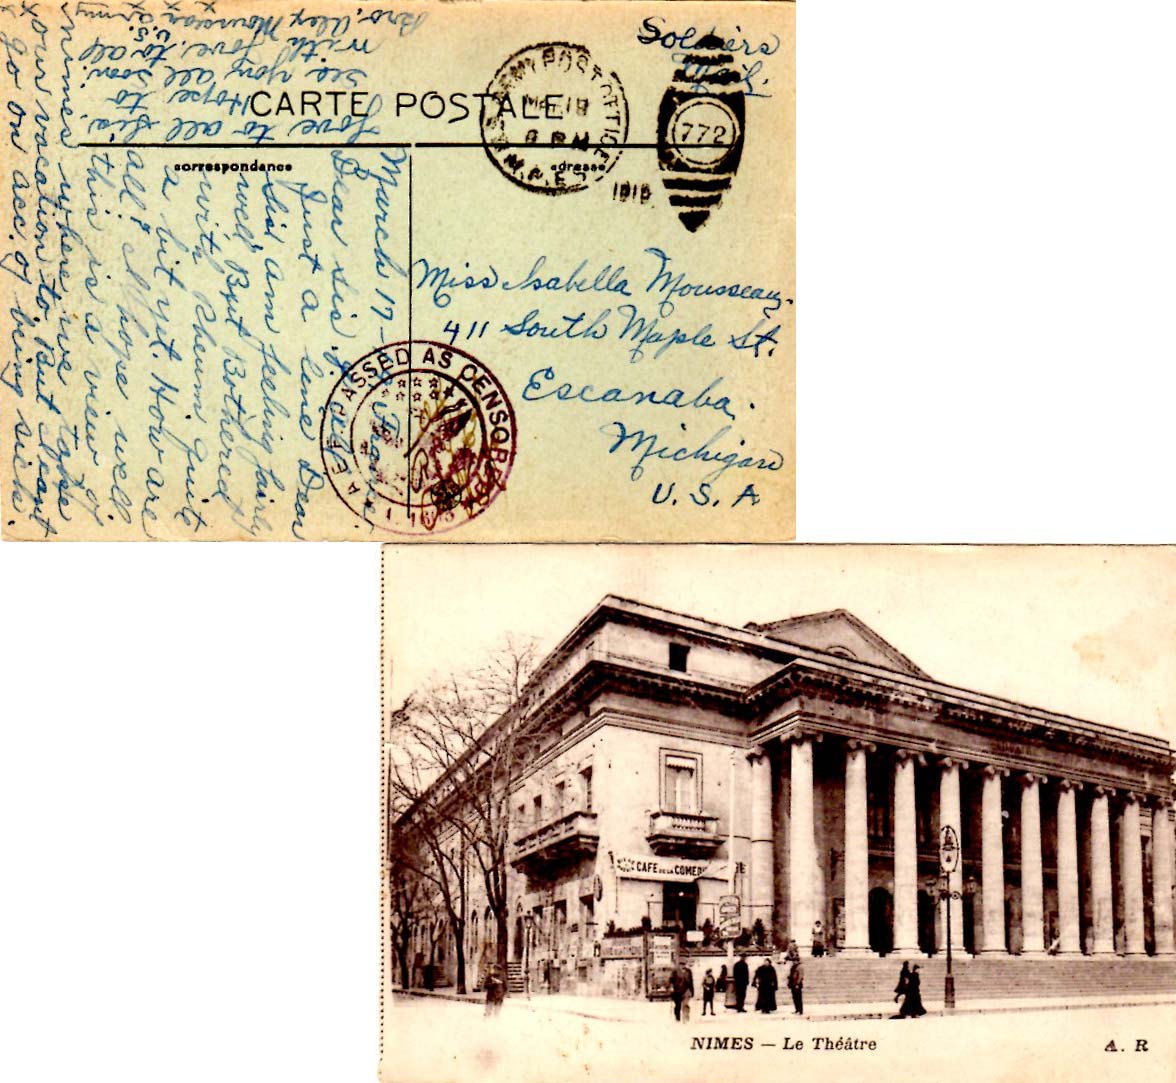 Soldiers
Mail.
CARTE POSTALE
correspondance
adresse
ARMY POST OFFICE
MAR 18
8 PM
1919
772
Miss Isabella Mousseau.
411 South Maple St.
Escanaba.
Michigan
U. S. A
A.E.F. PASSED AS CENSORED
March 17-
France.
Dear Sis & all.
Just a line Dear
Sis am feeling fairly
well, But Bothered
with Rheum quit
a bit yet. How are
all? I hope well
this is a view of
nimes where we take
our vacation to. But I cant
go on acc. of being sick.
Love to all Sis.
Hope to
see you all soon.
with love to all
Bro, Alex Mousseau
U.S. army
x x
CAFE DE LA COMEDIE
NIMES — Le Théâtre
A. R